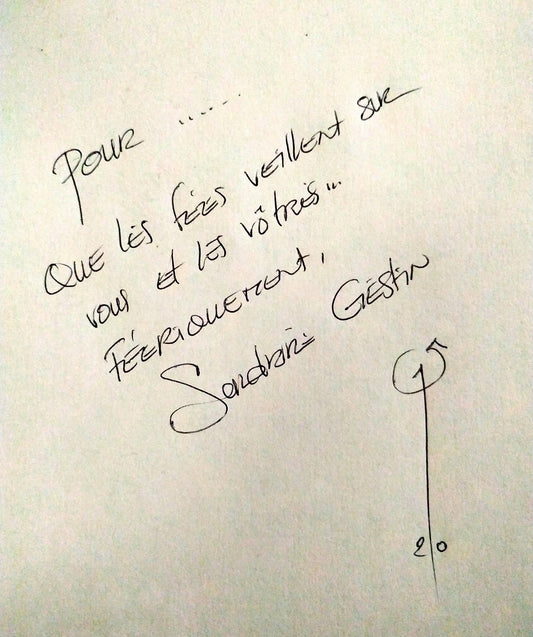 Pour ......
Que les fées veillent sur
vous et les vôtres...
Féeriquement,
Sandrine Gestin
20